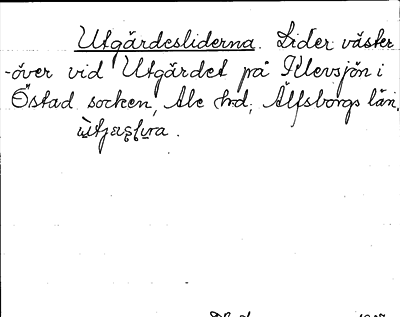 Utgärdesliderna. Lider väster
-över vid Utgärdet på Klevsjön i
Östad socken, Ale hrd, Älfsborgs län,